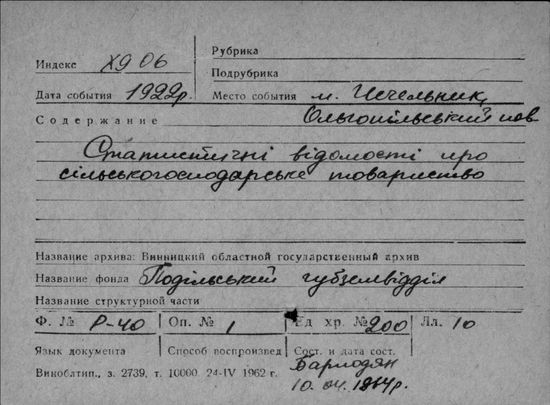 Индекс Х9 06
Рубрика
Подрубрика
Дата события 1922р.
Место события м. Чечельник,
Содержание Ольгопільський пов.
Статистичні відомості про
сільськогосподарське товариство
Название архива: Винницкий областной государственный архив
Название фонда Подільський губземвідділ
Название структурной части
Ф. № Р-40 Оп. № 1 Ед хр. № 200 Лл. 10
Язык документа Способ воспроизвед Сост. и дата сост.
Виноблтип., з. 2739, т. 10000 24-IV 1962 г.
10. 04.